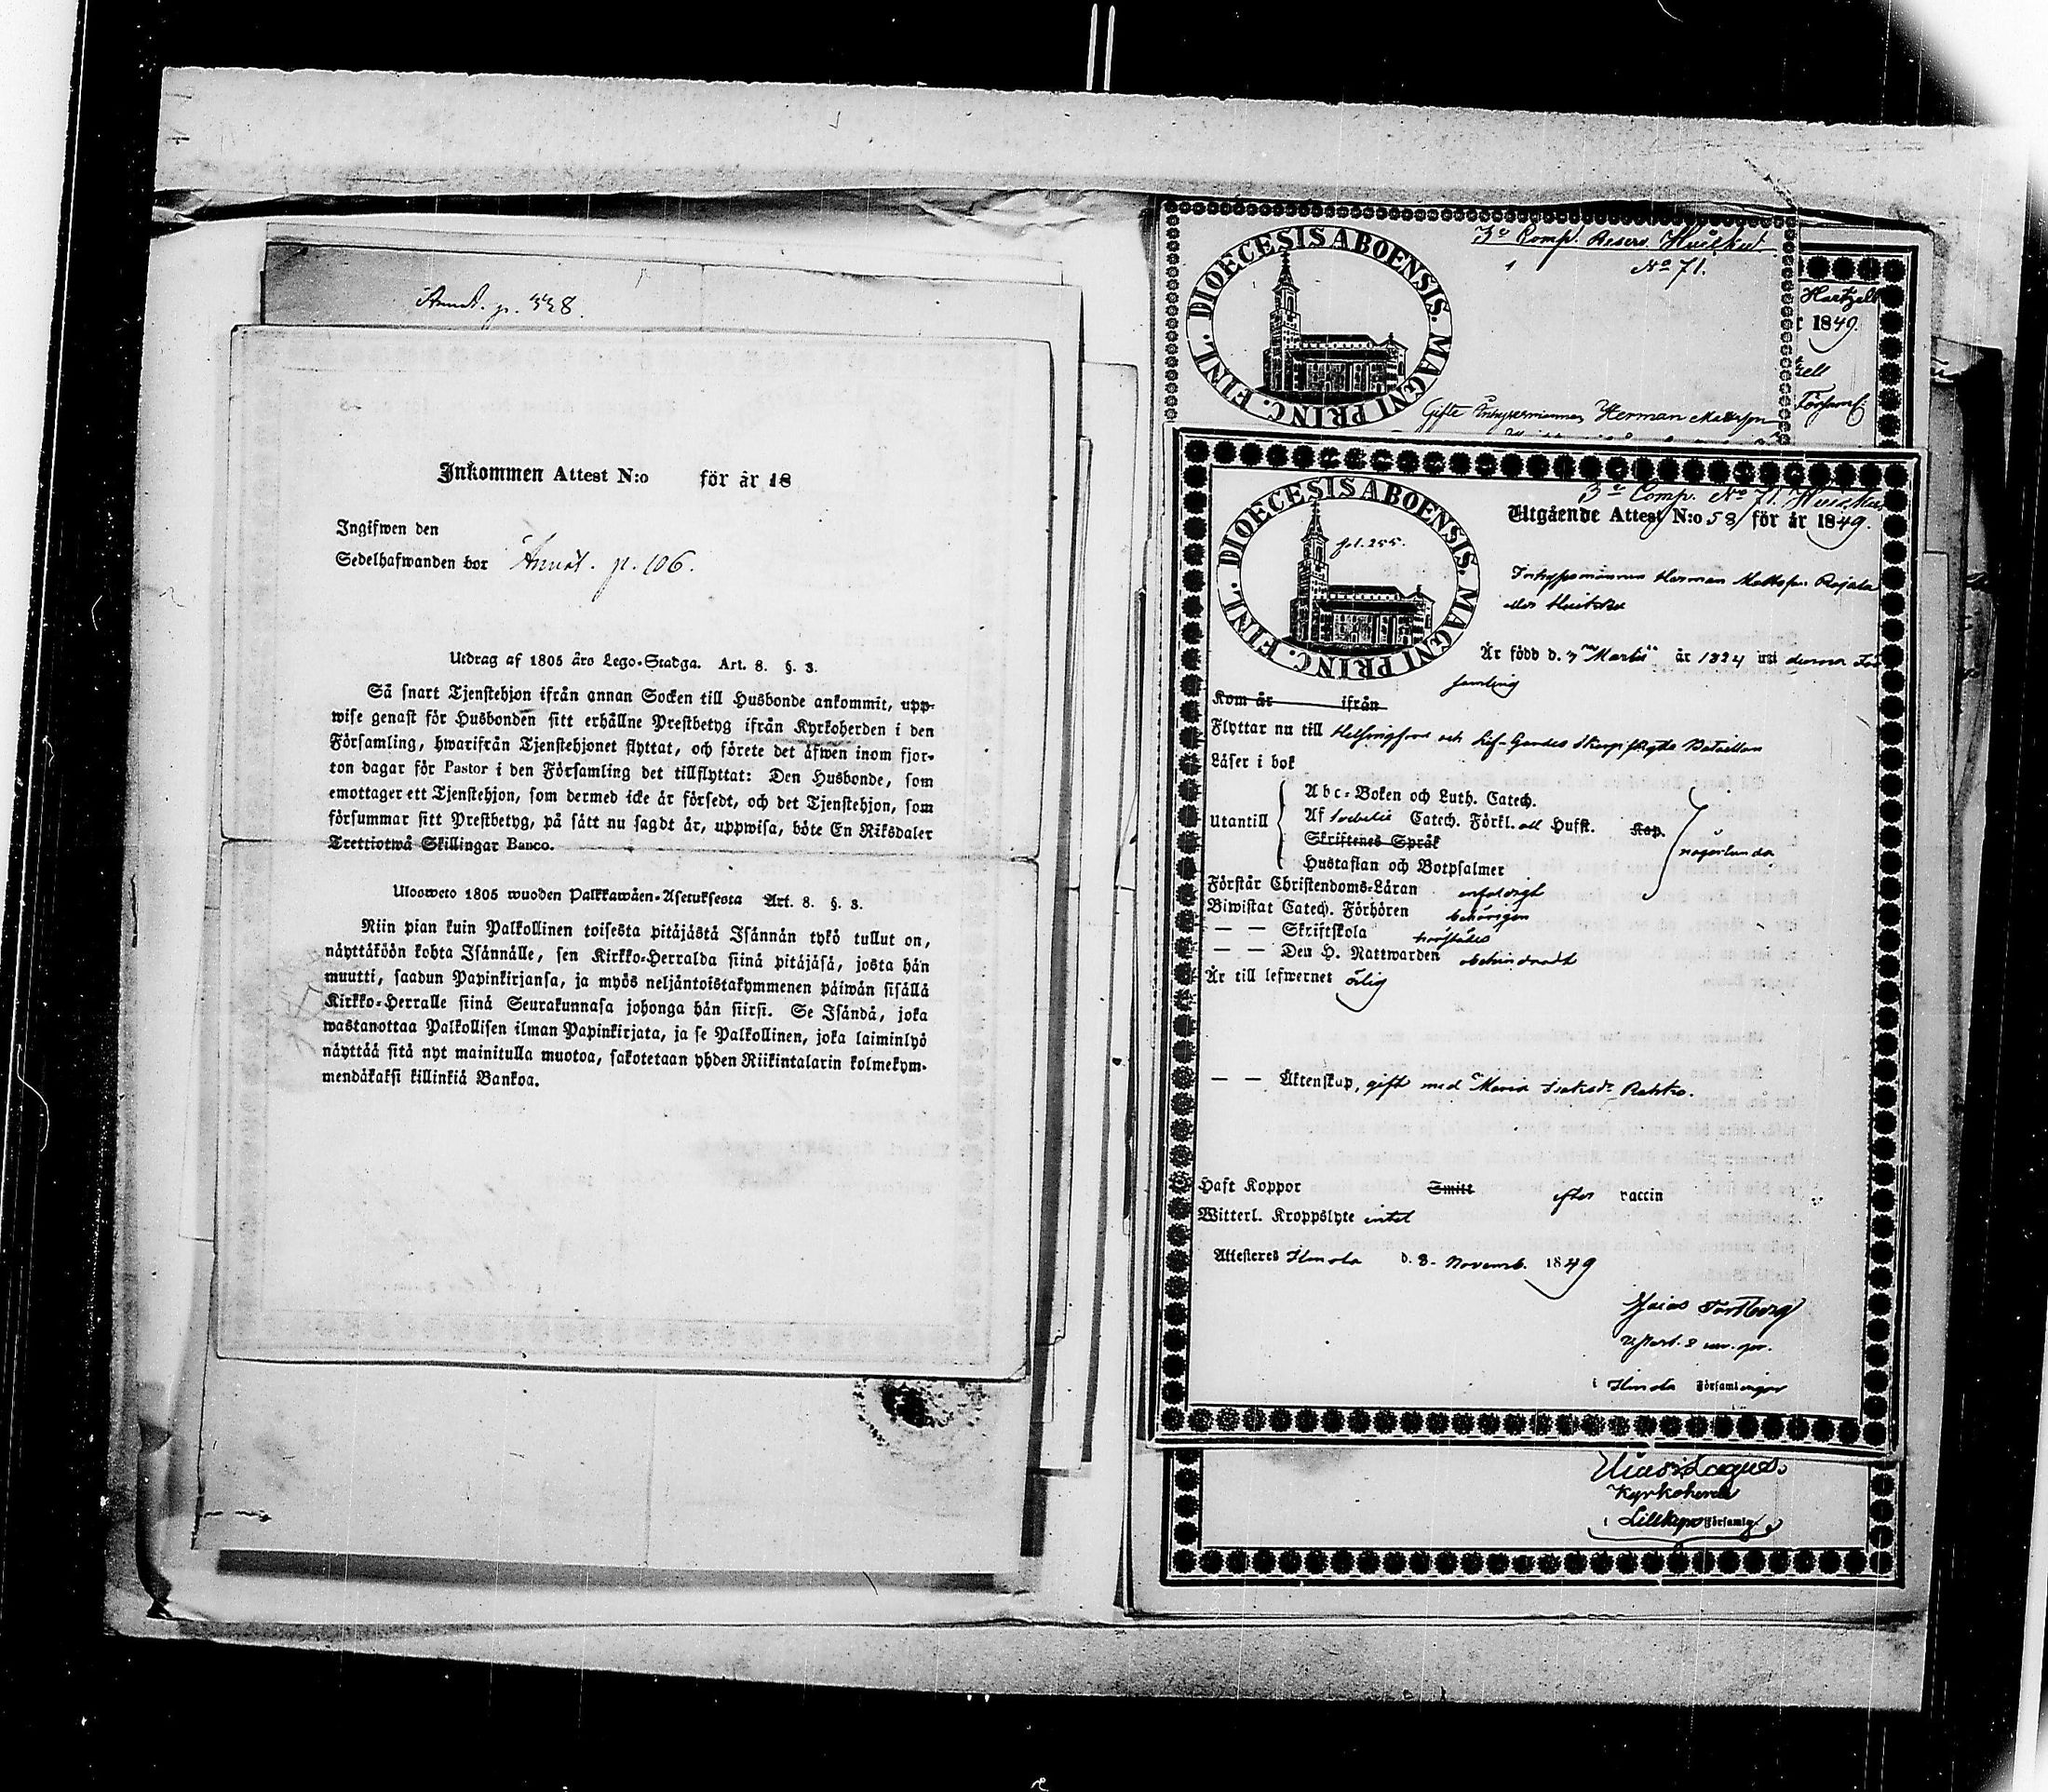 Annot. p. 338.
Inkommen Attest N:o för år 18
Ingifwen den
Sedelhafwanden bor Annot. p. 106.
Utdrag af 1805 års Lego-Stadga. Art. 8. §. 3.
Så snart Tjenstehjon ifrån annan Socken till Husbonde ankommit, upp-
wise genast för Husbonden sitt erhållne Prestbetyg ifrån Kyrkoherden i den
Församling, hwarifrån Tjenstehjonet flyttat, och förete det äfwen inom fjor-
ton dagar för Pastor i den Församling det tillflyttat: Den Husbonde, som
emottager ett Tjenstehjon, som dermed icke är försedt, och det Tjenstehjon, som
försummar sitt Prestbetyg, på sätt nu sagdt är, uppwisa, böte En Riksdaler
Trettiotwå Skillingar Banco.
Ulosweto 1805 wuoden Palkkawäen-Asetuksesta Art. 8. §. 3.
Niin pian kuin Palkollinen toisesta pitäjästä Isännän tykö tullut on,
näyttäköön kohta Isännälle, sen Kirkko-Herralda siinä pitäjäsä, josta hän
muutti, saadun Papinkirjansa, ja myös neljäntoistakymmenen päiwän sisällä
Kirkko-Herralle siinä Seurakunnasa johonga hän siirsi. Se Isändä, joka
wastanottaa Palkollisen ilman Papinkirjata, ja se Palkollinen, joka laiminlyö
näyttää sitä nyt mainitulla muotoa, sakotetaan yhden Riikintalarin kolmekym-
mendäkaksi killinkiä Bankoa.
3e Comp. Reserv. Huiskut
No 71.
DIOECESIS ABOENSIS. MAGNI PRINC. FINL.
Gifte Herman Mattsson
Hartzell
r 1849.
zell
Församl
3e Comp. No 71. Huiskus
Utgående Attest N:o 58 för år 1849.
DIOECESIS ABOENSIS. MAGNI PRINC. FINL.
fol. 255.
Herman Mattsson Rojala
Är född d. 3 Martii år 1824 uti denna För
samling
Kom år ifrån
Flyttar nu till Helsingfors och Lif-Gardes Skarpskytte Bataillon
Läser i bok
Utantill
Abc-Boken och Luth. Catech.
Af Svebelii Catech. Förkl. all Husst. Kap.
Skriftenes Språk
Hustaflan och Botpsalmer
någorlunda
Förstår Christendoms-Läran enfaldigt
Biwistat Catech. Förhören behörigen
— — Skriftskola
— — Den H. Nattwarden obehindradt
Är till lefwernet ärlig
— — Äktenskap, gift med Maria Isaksdr Rahko.
Haft Koppor Smitt efter vaccin
Witterl. Kroppslyte intet
Attesteras Ilmola d. 8 Novemb. 1849
Esaias
i Ilmola Församlingar
Elias Lagus.
Kyrkoherde
i Lillkyro Församlg.